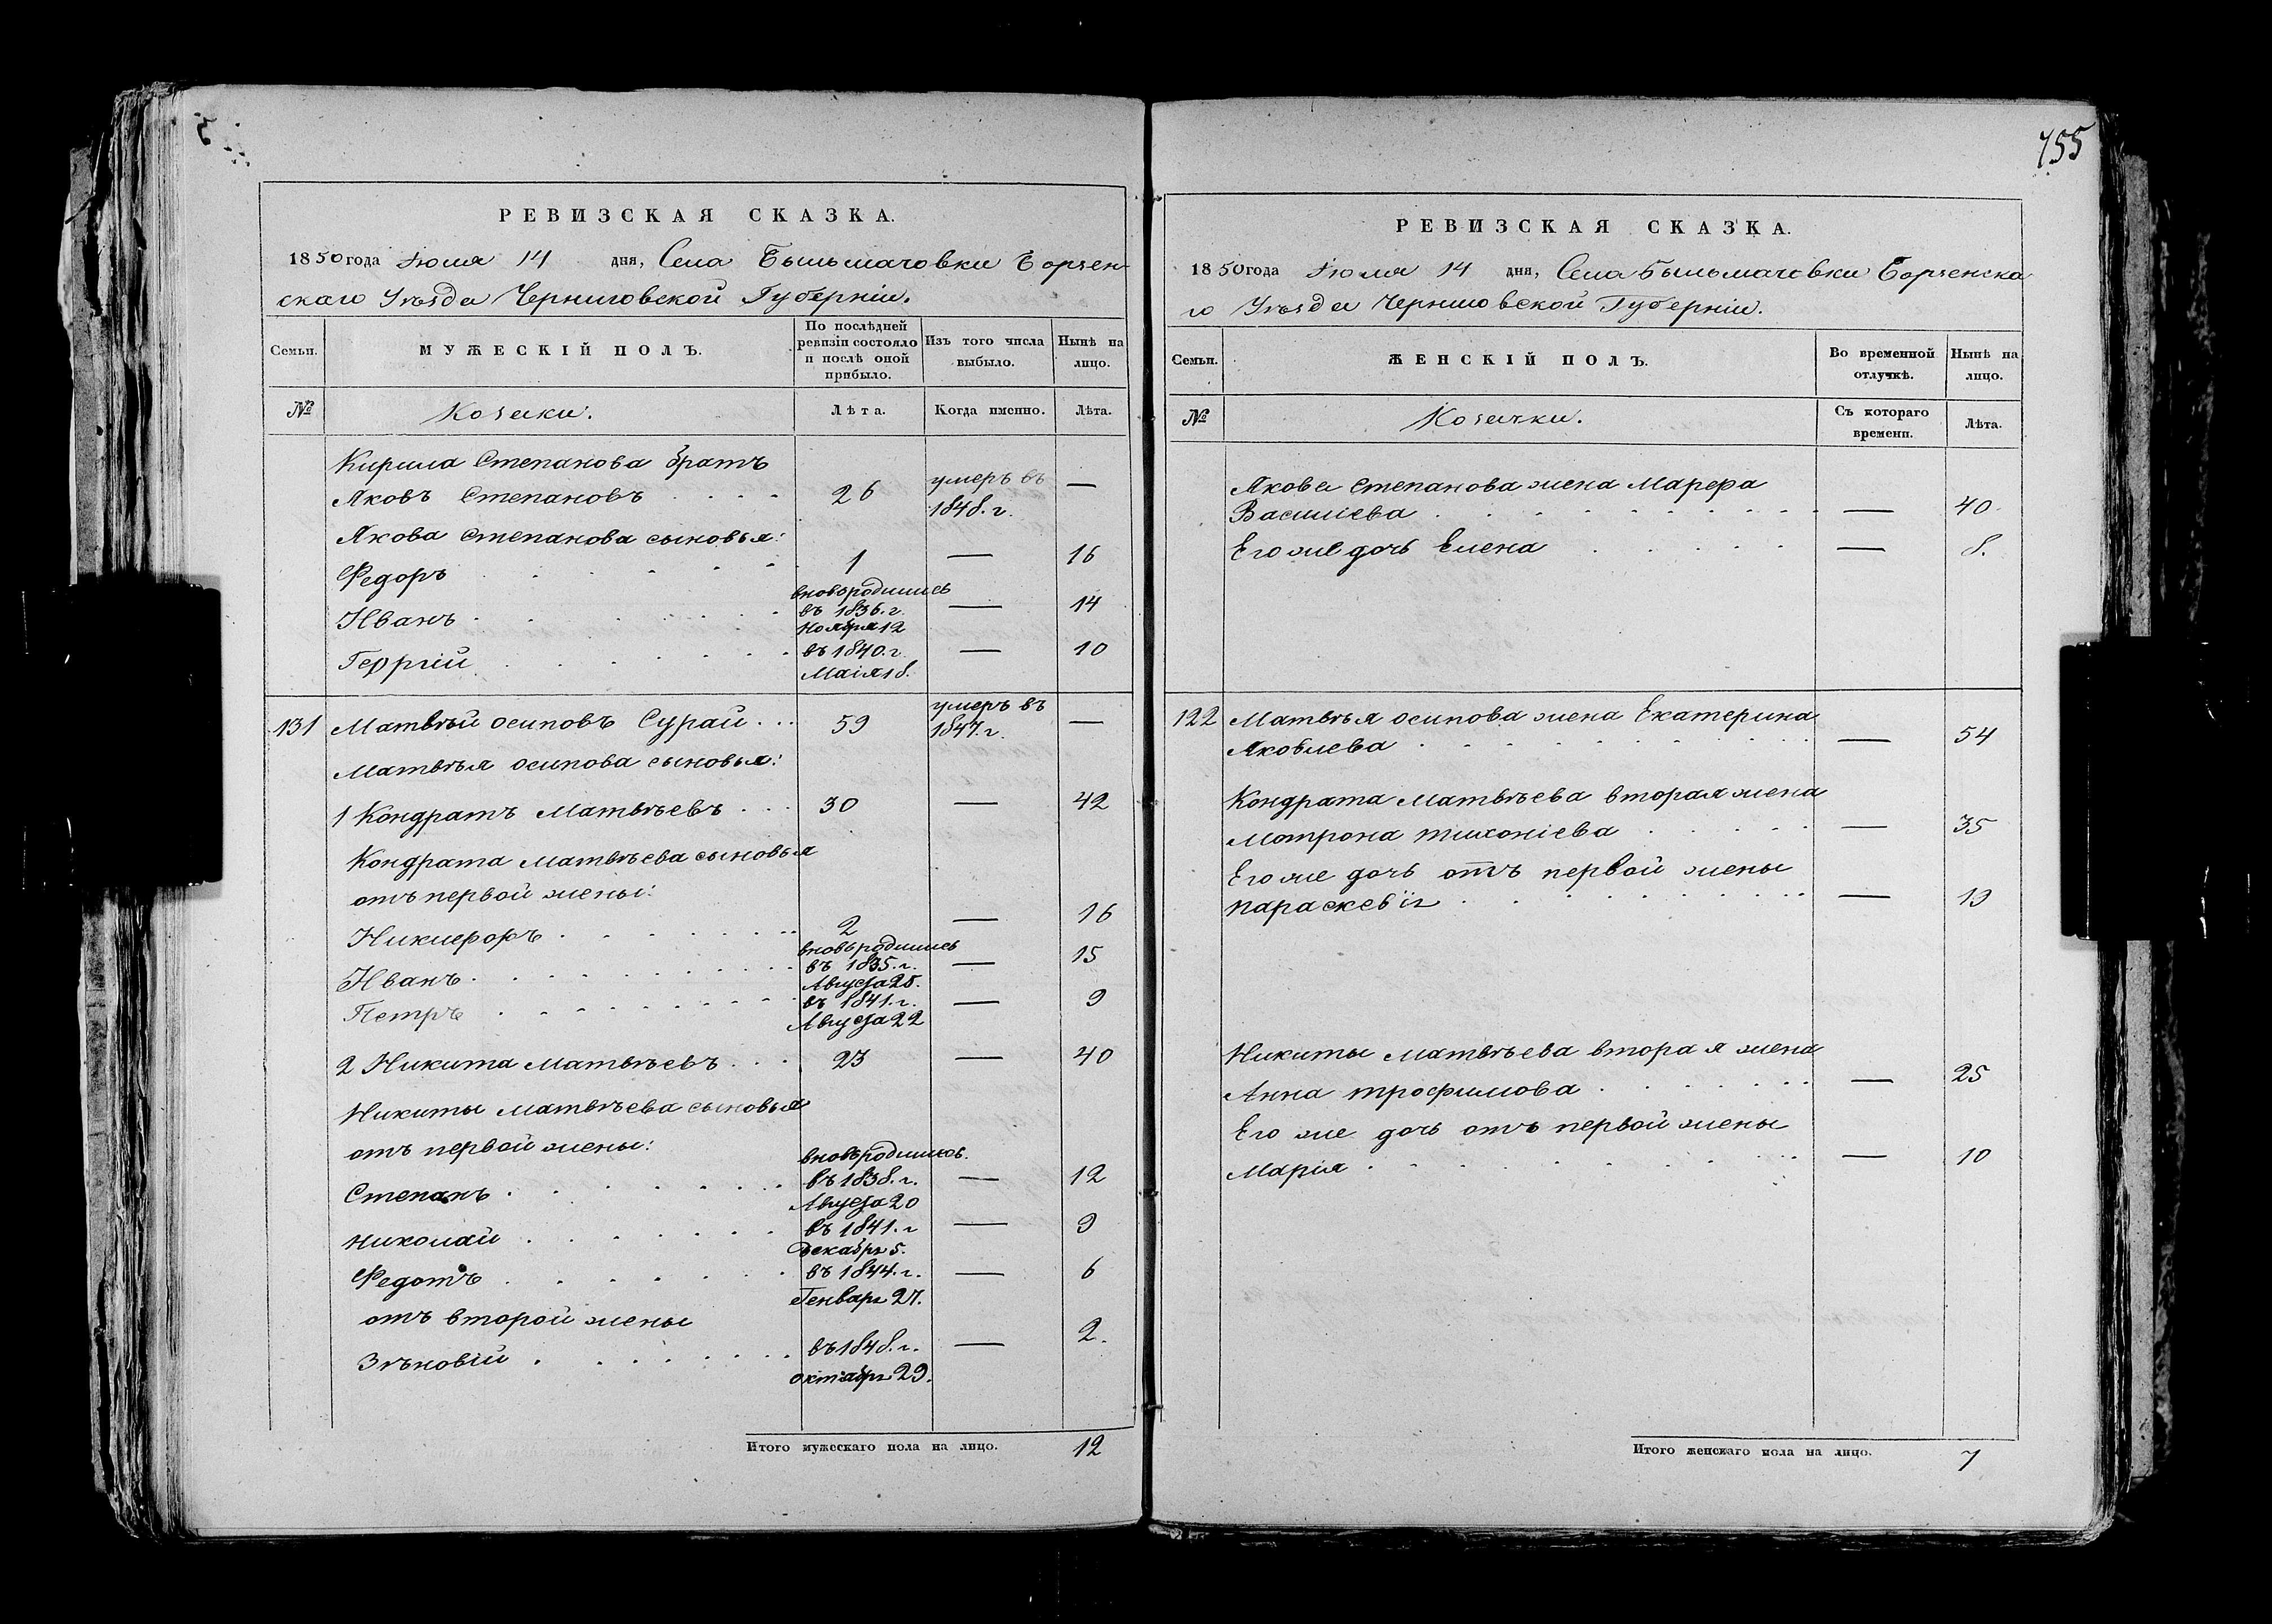 РЕВИЗСКАЯ СКАЗКА.
1850 года Іюля 14 дня, Села Бильмачовки Борзен-
скаго Уѣзда Черниговской Губерніи.
Семьи.
МУЖЕСКІЙ ПОЛЪ.
По послѣдней ревизіи состояло и послѣ оной прибыло.
Изъ того числа выбыло.
Нынѣ на лицо.
№ Козаки. Лѣта. Когда именно. Лѣта.
Кирила Степанова братъ
Яковъ Степановъ 26 умеръ въ 1848. г. —
Якова Степанова сыновья:
Федоръ 1 — 16
Иванъ вновьродились въ 1836. г. Ноября 12 — 14
Георгій въ 1840. г. Маія 18. — 10
131 Матвѣй Осиповъ Сурай 59 умеръ въ 1847. г. —
Матвѣя Осипова сыновья:
1 Кондратъ Матвѣевъ 30 — 42
Кондрата Матвѣева сыновья
отъ первой жены:
Никифоръ 2 — 16
Иванъ вновьродились въ 1835. г. Августа 28. — 15
Петръ въ 1841. г. Августа 22 — 9
2 Никита Матвѣевъ 23 — 40
Никиты Матвѣева сыновья
отъ первой жены:
Степанъ вновьродились. въ 1838. г. Августа 20 — 12
Николай въ 1841. г Декабря 5. — 9
Федотъ въ 1844. г. Генваря 27. — 6
отъ второй жены
Зѣновій въ 1848. г. октября 29. — 2.
Итого мужескаго пола на лицо. 12
755
РЕВИЗСКАЯ СКАЗКА.
1850 года Іюля 14 дня, Села Бильмачовки Борзенска
го Уѣзда Черниговской Губерніи.
Семьи.
ЖЕНСКІЙ ПОЛЪ.
Во временной отлучкѣ.
Нынѣ на лицо.
№ Козачки. Съ котораго времени. Лѣта.
Якова Степанова жена Марфа
Василіева — 40
Его же дочь Елена — 8.
122 Матвѣя Осипова жена Екатерина
Яковлева — 54
Кондрата Матвѣева вторая жена
Мотрона Тихоніева — 35
Его же дочь отъ первой жены
Параскевія — 19
Никиты Матвѣева вторая жена
Анна Трофимова — 25
Его же дочь отъ первой жены
Марія — 10
Итого женскаго пола на лицо. 7